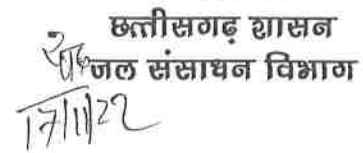 छत्तीसगढ़ शासन
जल संसाधन विभाग
17/11/22